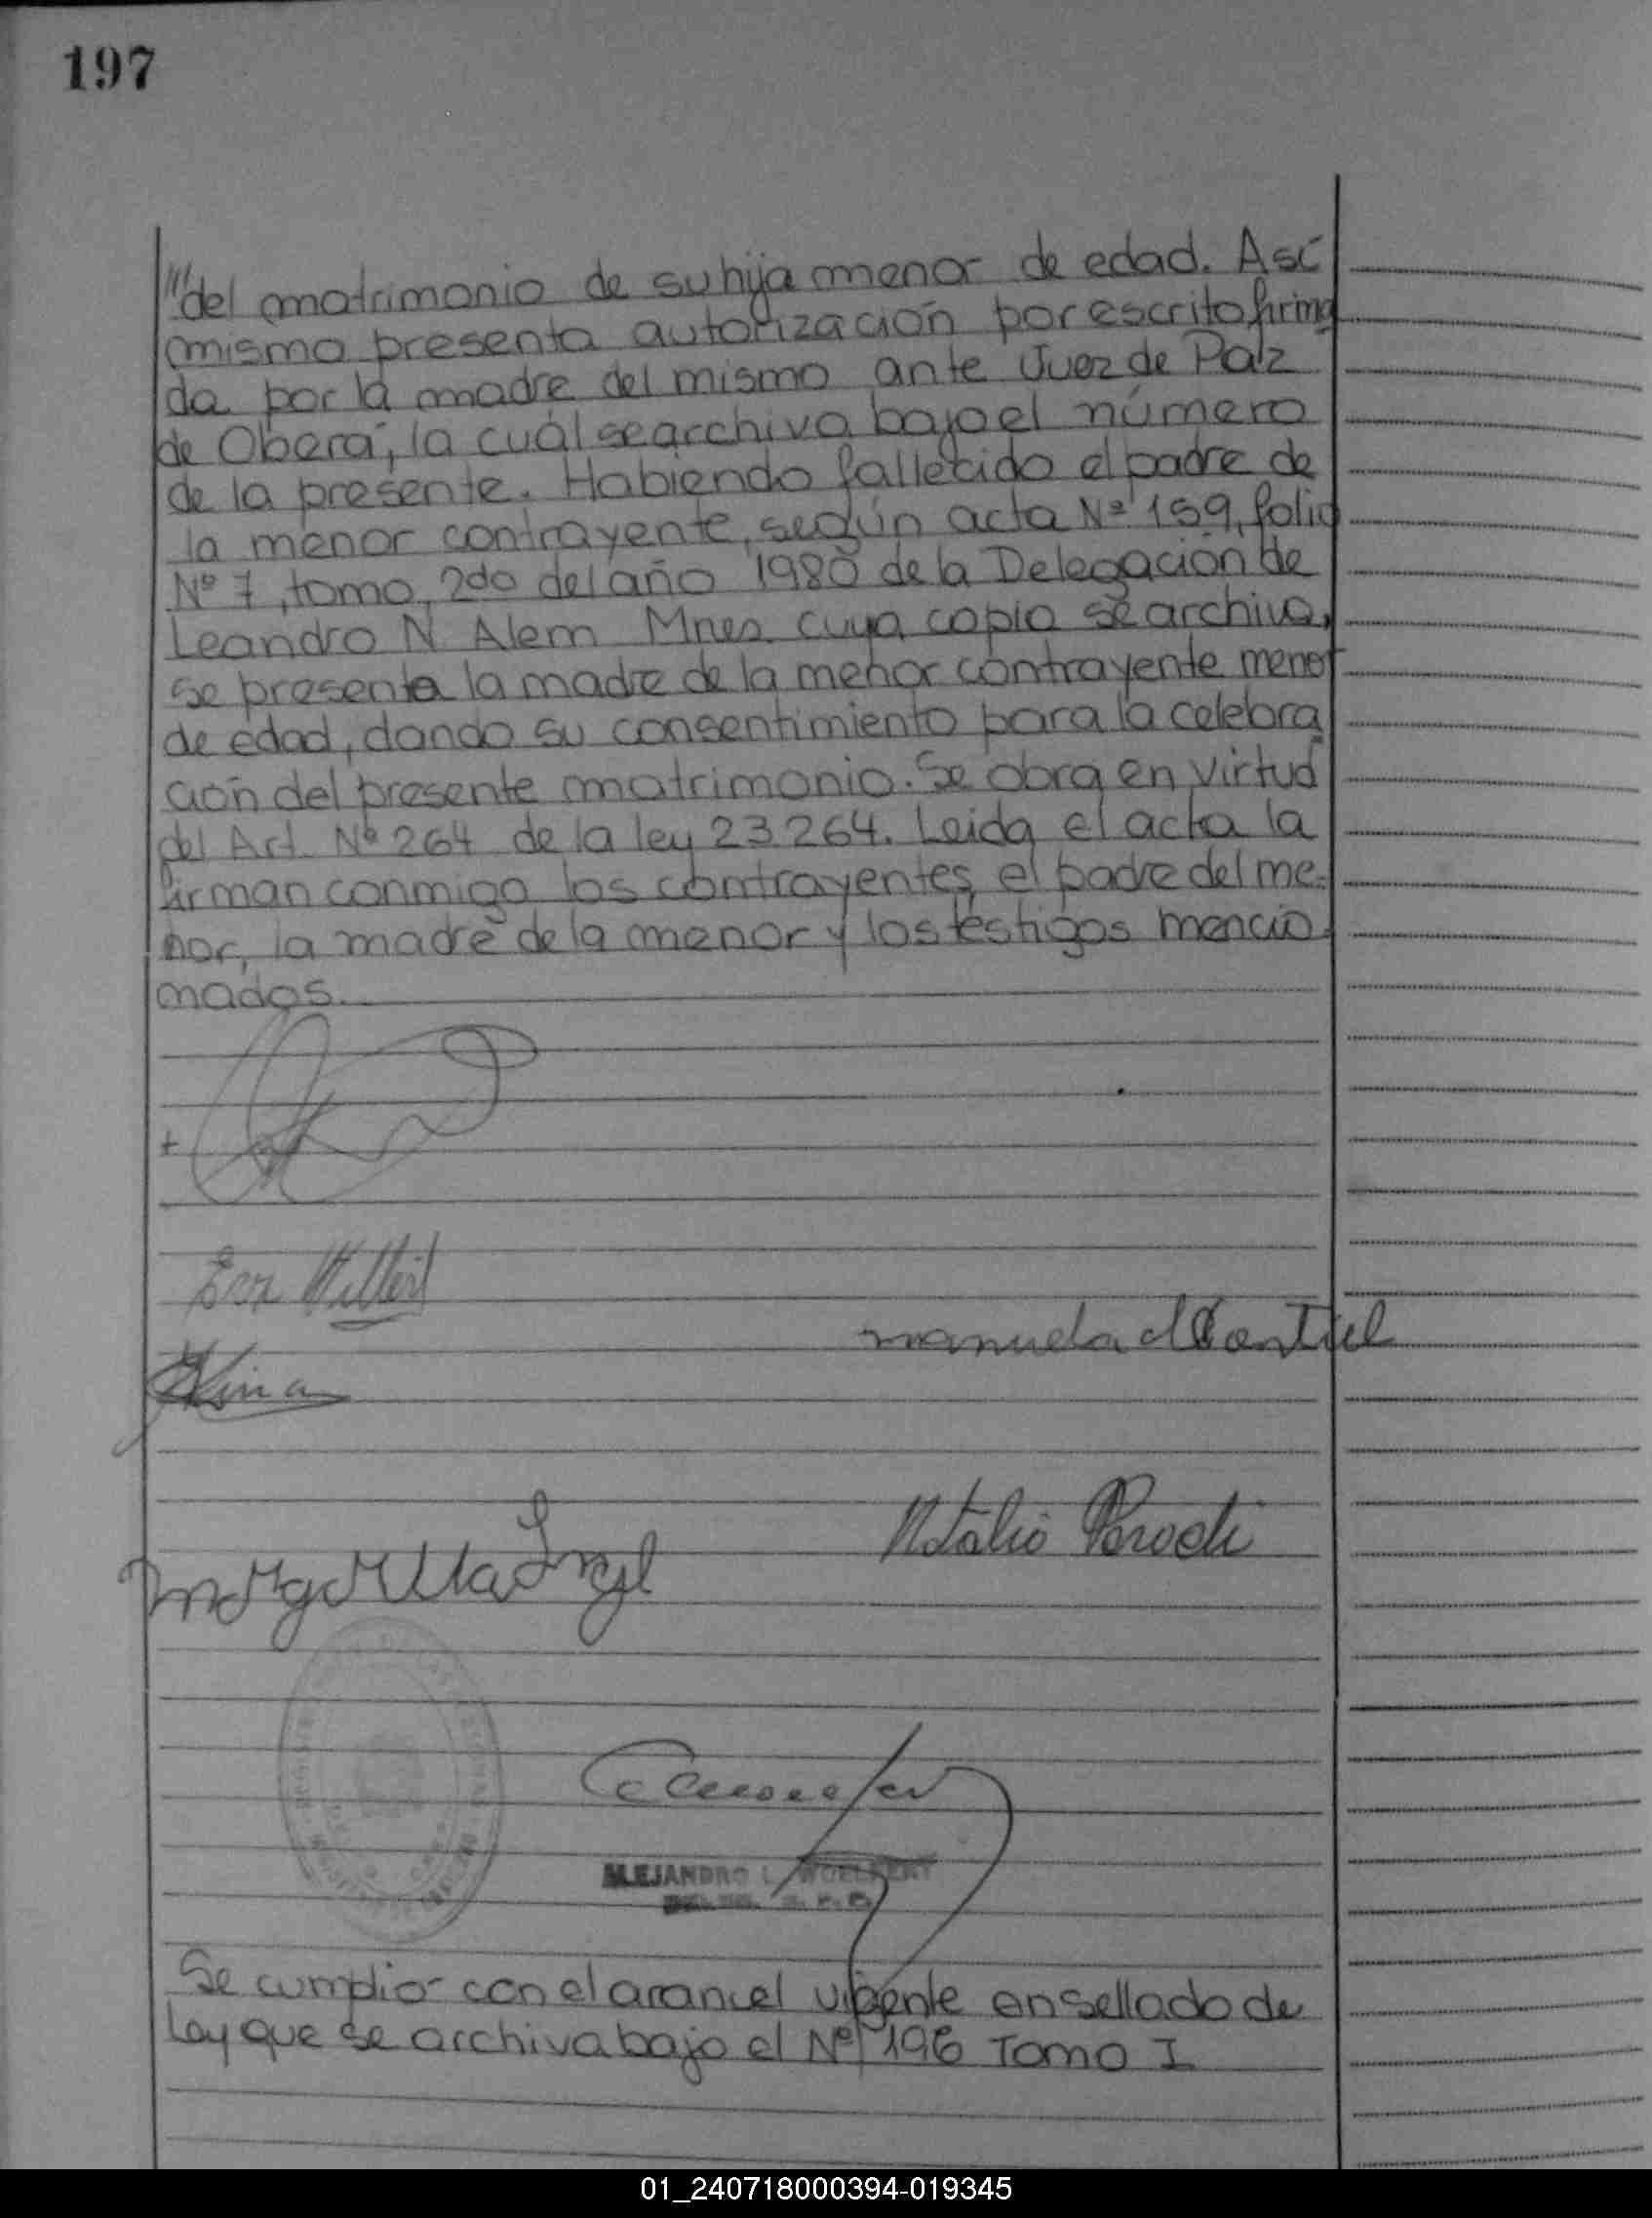 197
/// del matrimonio de su hija menor de edad. Así
mismo presenta autorización por escrito firma
da por la madre del mismo ante Juez de Paz
de Oberá, la cuál se archiva bajo el número
de la presente. Habiendo fallecido el padre de
la menor contrayente, según acta Nº 159, folio
Nº 7, tomo, 2do del año 1980 de la Delegación de
Leandro N. Alem Mnes. cuya copia se archiva,
se presenta la madre de la menor contrayente menor
de edad, dando su consentimiento para la celebra
ción del presente matrimonio. Se obra en virtud
del Art. Nº 264 de la ley 23.264. Leida el acta la
firman conmigo los contrayentes, el padre del me-
nor, la madre de la menor y los testigos mencio-
nados.
manuela
Natalio Parodi
ALEJANDRO L.
Se cumplió con el arancel vigente en sellado de
Ley que se archiva bajo el Nº 196 Tomo I
01_240718000394-019345